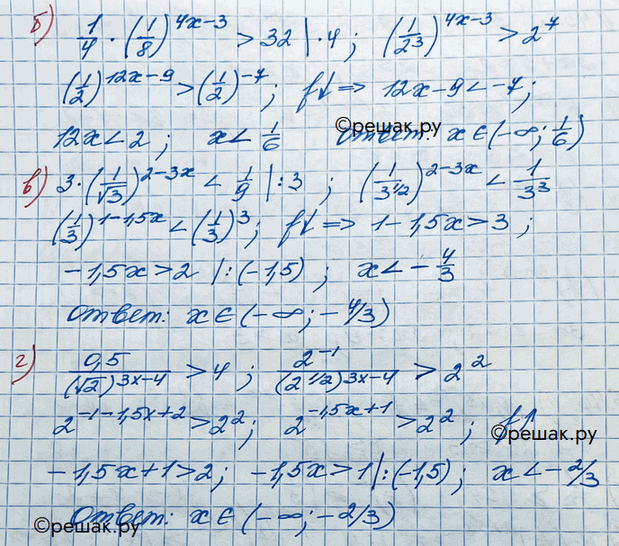 б) 1/4 · (1/8)^(4x-3) > 32 | · 4 ; (1/2³)^(4x-3) > 2⁷
(1/2)^(12x-9) > (1/2)^(-7) ; f↓ => 12x-9 < -7 ;
12x < 2 ; x < 1/6 Ответ: x ∈ (-∞; 1/6)
©решак.ру
в) 3 · (1/√3)^(2-3x) < 1/9 | : 3 ; (1/3^(1/2))^(2-3x) < 1/3³
(1/3)^(1-1,5x) < (1/3)³ ; f↓ => 1-1,5x > 3 ;
-1,5x > 2 | : (-1,5) ; x < -4/3
Ответ: x ∈ (-∞; -4/3)
г) 0,5/(√2)^(3x-4) > 4 ; 2^(-1)/(2^(1/2))^(3x-4) > 2²
2^(-1-1,5x+2) > 2² ; 2^(-1,5x+1) > 2² ; f↑
©решак.ру
-1,5x+1 > 2 ; -1,5x > 1 | : (-1,5) ; x < -2/3
Ответ: x ∈ (-∞; -2/3)
©решак.ру